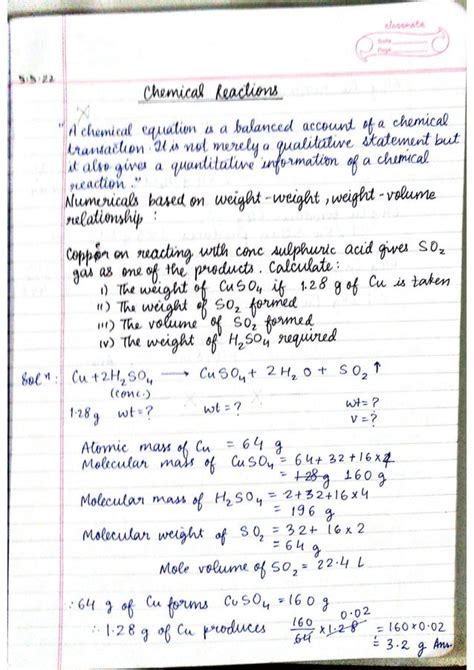 classmate
Date
Page
5.5.22
Chemical Reactions
"A chemical equation is a balanced account of a chemical
transaction. It is not merely a qualitative statement but
it also gives a quantitative information of a chemical
reaction."
Numericals based on weight-weight, weight-volume
relationship :
Copper on reacting with conc sulphuric acid gives SO₂
gas as one of the products. Calculate:
i) The weight of CuSO₄ if 1.28 g of Cu is taken
ii) The weight of SO₂ formed
iii) The volume of SO₂ formed
iv) The weight of H₂SO₄ required
Solⁿ: Cu + 2H₂SO₄ → CuSO₄ + 2H₂O + SO₂↑
(conc.)
1.28g wt=? wt=? wt=?
V=?
Atomic mass of Cu = 64 g
Molecular mass of CuSO₄ = 64+32+16×4
= 128g 160g
Molecular mass of H₂SO₄ = 2+32+16×4
= 196 g
Molecular weight of SO₂ = 32+16×2
= 64 g
Mole volume of SO₂ = 22.4 L
∴ 64 g of Cu forms CuSO₄ = 160 g
∴ 1.28 g of Cu produces 160/64 × 1.28 0.02 = 160×0.02
= 3.2 g Ans